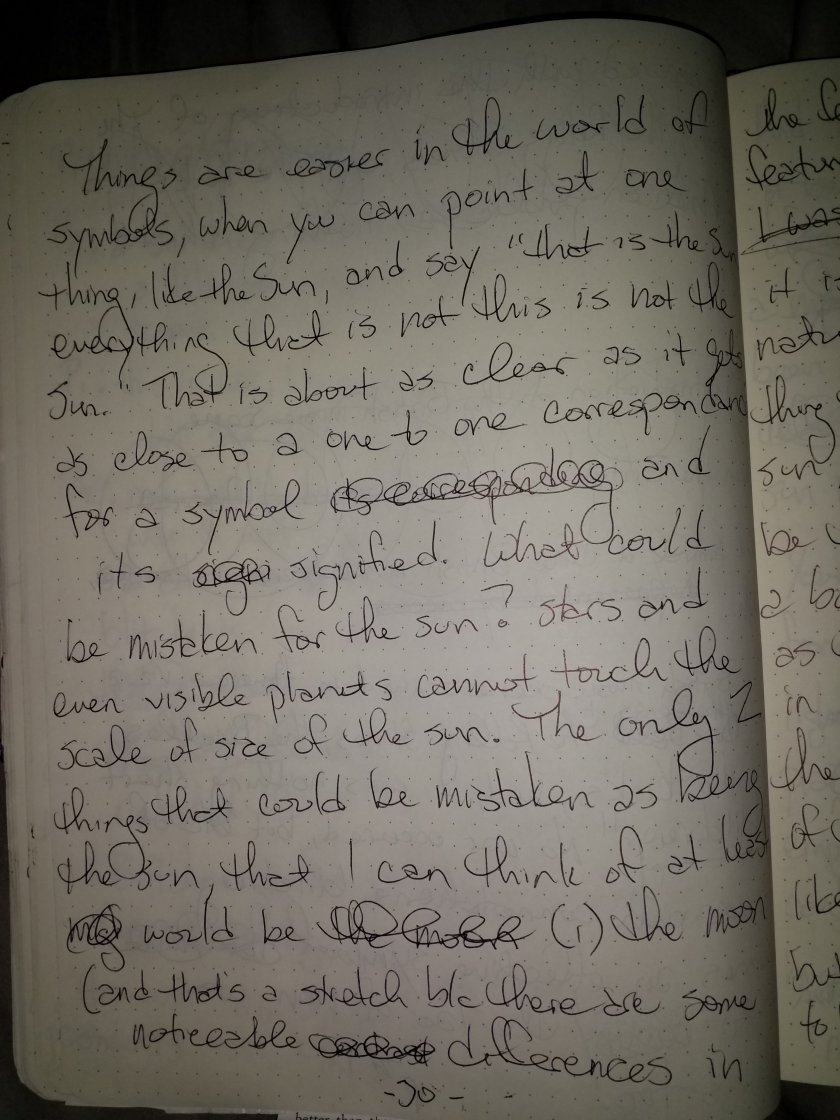 Things are easier in the world of
symbols, when you can point at one
thing, like the Sun, and say "that is the Sun
everything that is not this is not the
Sun." That is about as clear as it gets
as close to a one to one correspondance
for a symbol its corresponding and
its sign signified. What could
be mistaken for the sun? stars and
even visible planets cannot touch the
scale of size of the sun. The only 2
things that could be mistaken as being
the sun, that I can think of at least
would be the moon (i) the moon
(and that's a stretch b/c there are some
noticeable differences in
-30-
the fe
featur
I was
it is
natu
thing
sun
be
a ba
as
in
the
of
like
but
to